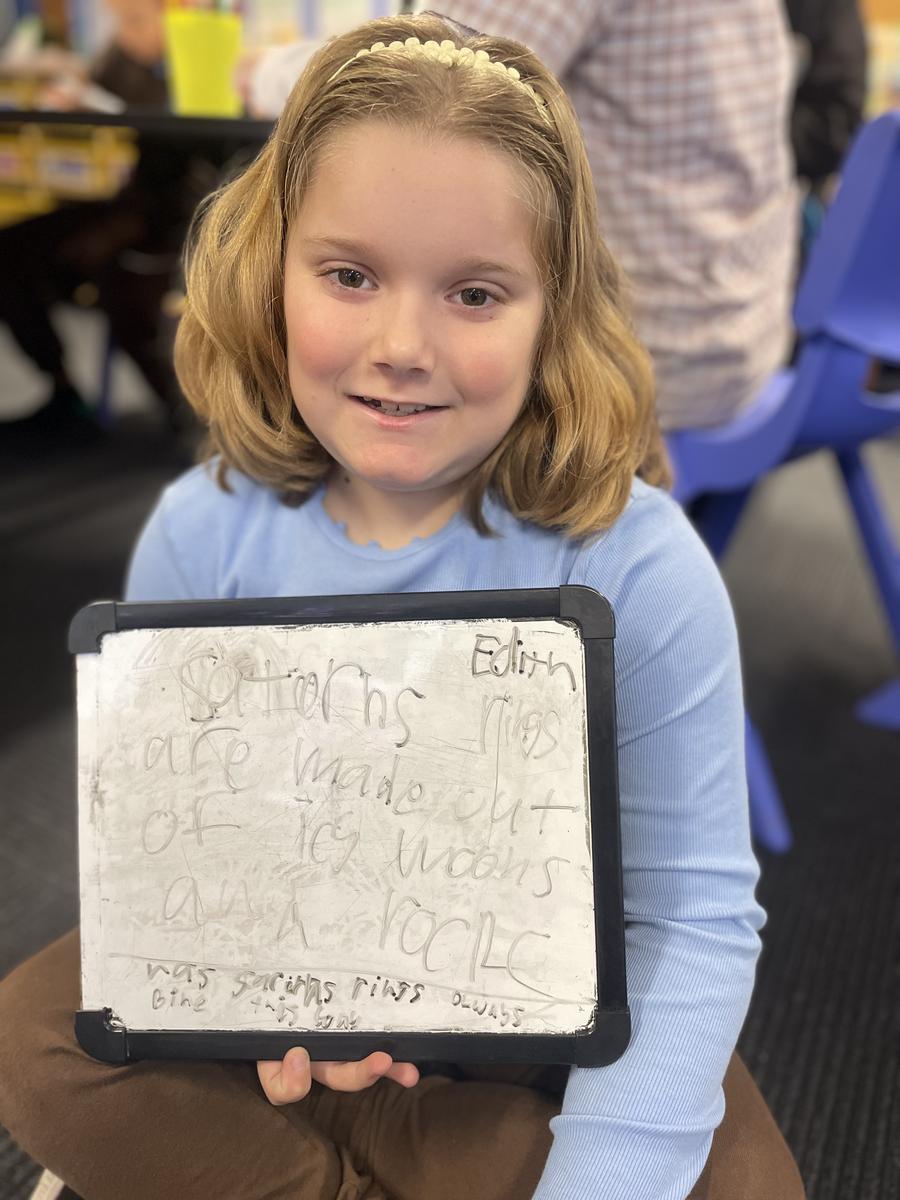 Edith
Satorns rings
are made out
of icy moons
and rock
has sarirhs rings always
bine this way